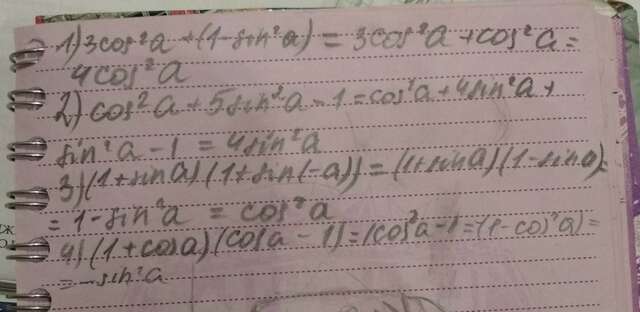 1) 3cos²a + (1-sin²a) = 3cos²a + cos²a =
4cos²a
2) cos²a + 5sin²a - 1 = cos²a + 4sin²a +
sin²a - 1 = 4sin²a
3) (1+sina)(1+sin(-a)) = (1+sina)(1-sina)=
= 1-sin²a = cos²a
4) (1+cosa)(cosa-1) = (cos²a-1=-(1-cos²a)=
= -sin²a